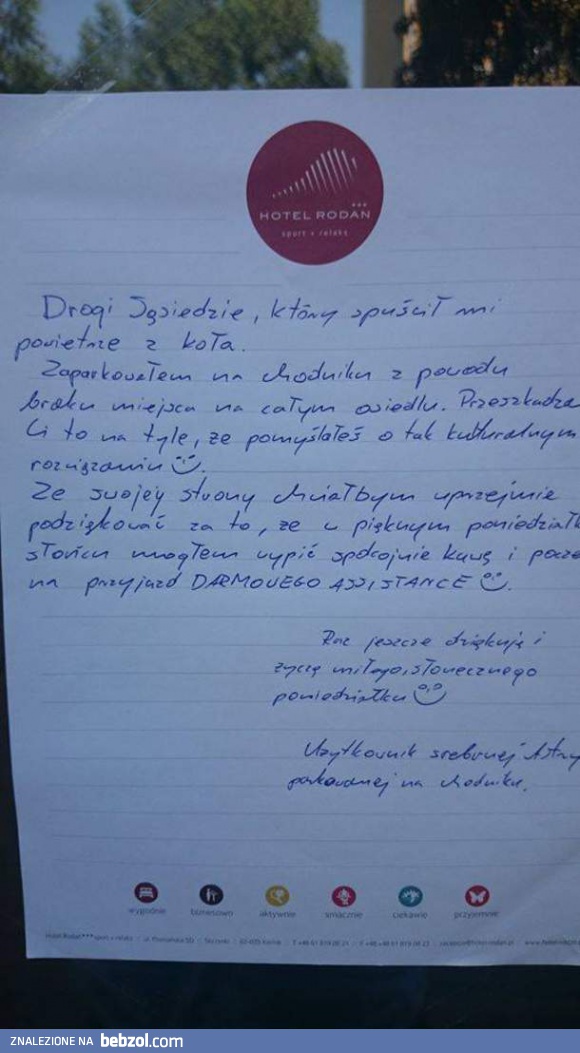 HOTEL RODAN
sport + relaks
Drogi Sąsiedzie, który spuścił mi
powietrze z koła.
Zaparkowałem na chodniku z powodu
braku miejsca na całym osiedlu. Przeszkadza
Ci to na tyle, że pomyślałeś o tak kulturalnym
rozwiązaniu
Ze swojej strony chciałbym uprzejmie
podziękować za to, że w pięknym poniedział
słońcu mogłem wypić spokojnie kawę i pocze
na przyjazd DARMOWEGO ASSISTANCE
Raz jeszcze dziękuję i
życzę miłego, słonecznego
poniedziałku
Użytkownik srebrnej Astry
parkowanej na chodniku.
wygodnie biznesowo aktywnie smacznie ciekawie przyjemnie
Hotel Rodan*** sport + relaks
ZNALEZIONE NA bebzol.com